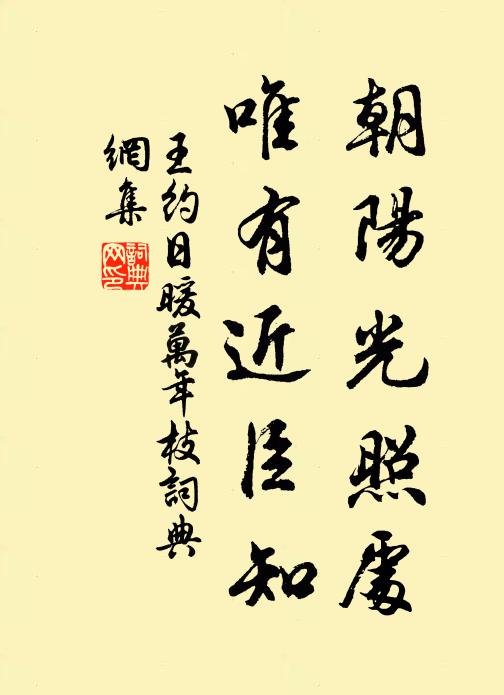 朝陽光照處
唯有近臣知
王約日暖萬年枝詞典
網集
詞典
网印